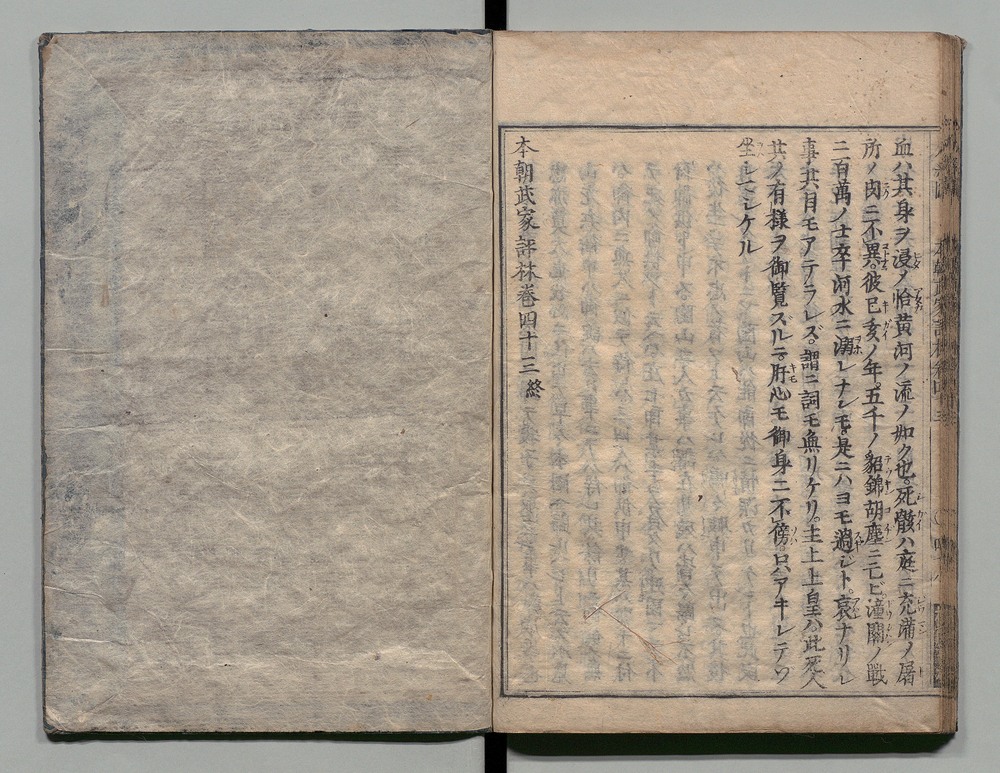 血ハ其身ヲ浸メ恰黄河ノ流ノ如ク也。死骸ハ庭ニ充滿メ屠
所ノ肉ニ不異。彼巳亥ノ年。五千ノ貂錦胡塵ニ亡ビ。潼關ノ戰
ニ百萬ノ士卒河水ニ溺レナンモ。是ニハヨモ過ジト。哀ナリシ
事共目モアテラレズ。謂ニ詞モ無リケリ。主上上皇ハ此死人
共ノ有様ヲ御覧ズルニ。肝心モ御身ニ不傍。只アキレテゾ
坐シマシケル
本朝武家評林巻四十三終